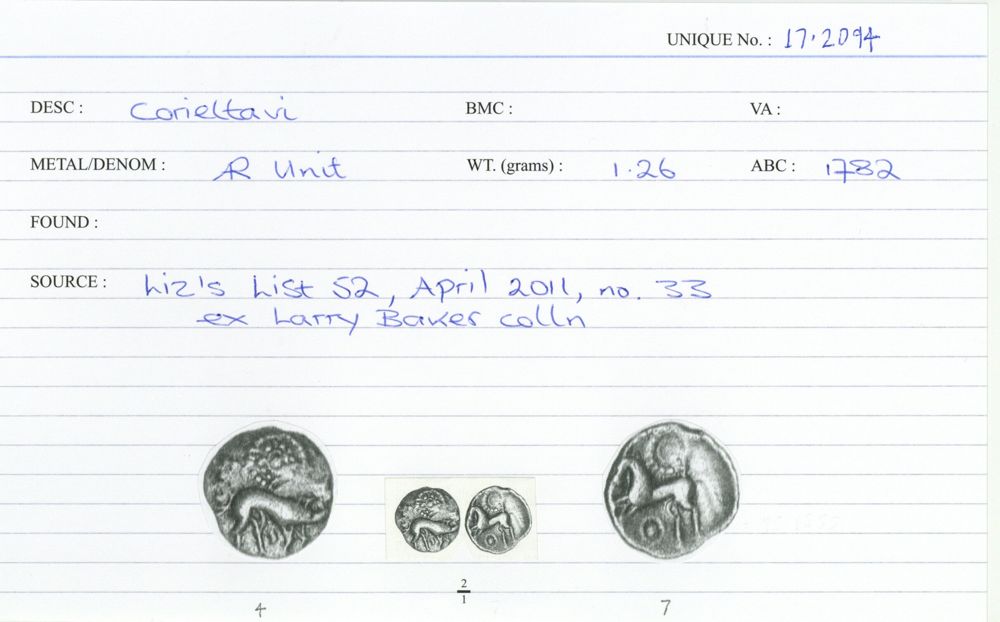 UNIQUE No. : 17.2094
DESC : Corieltavi BMC : VA :
METAL/DENOM : AR Unit WT. (grams) : 1.26 ABC : 1782
FOUND :
SOURCE : Liz's List 52, April 2011, no. 33
ex Larry Baker colln
2
1
4 7